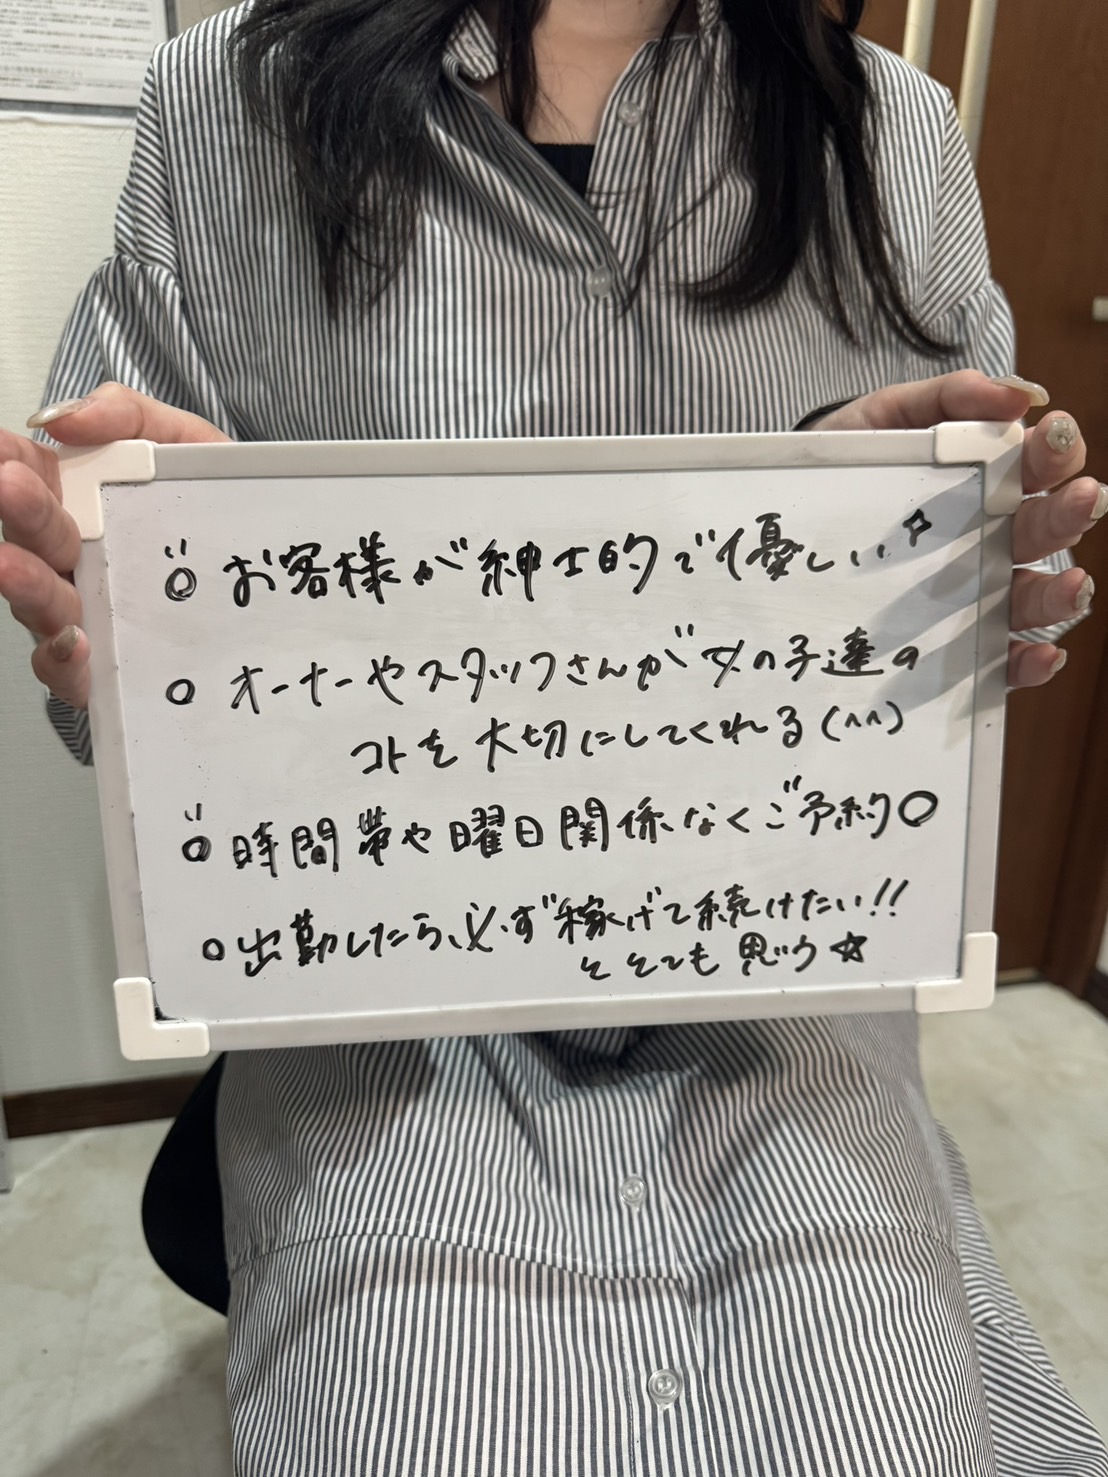 ○ お客様が紳士的で優しい✧
○ オーナーやスタッフさんが女の子達の
コトを大切にしてくれる(^^)
○ 時間帯や曜日関係なくご予約○
○ 出勤したら、必ず稼げて続けたい!!
と とても 思う☆